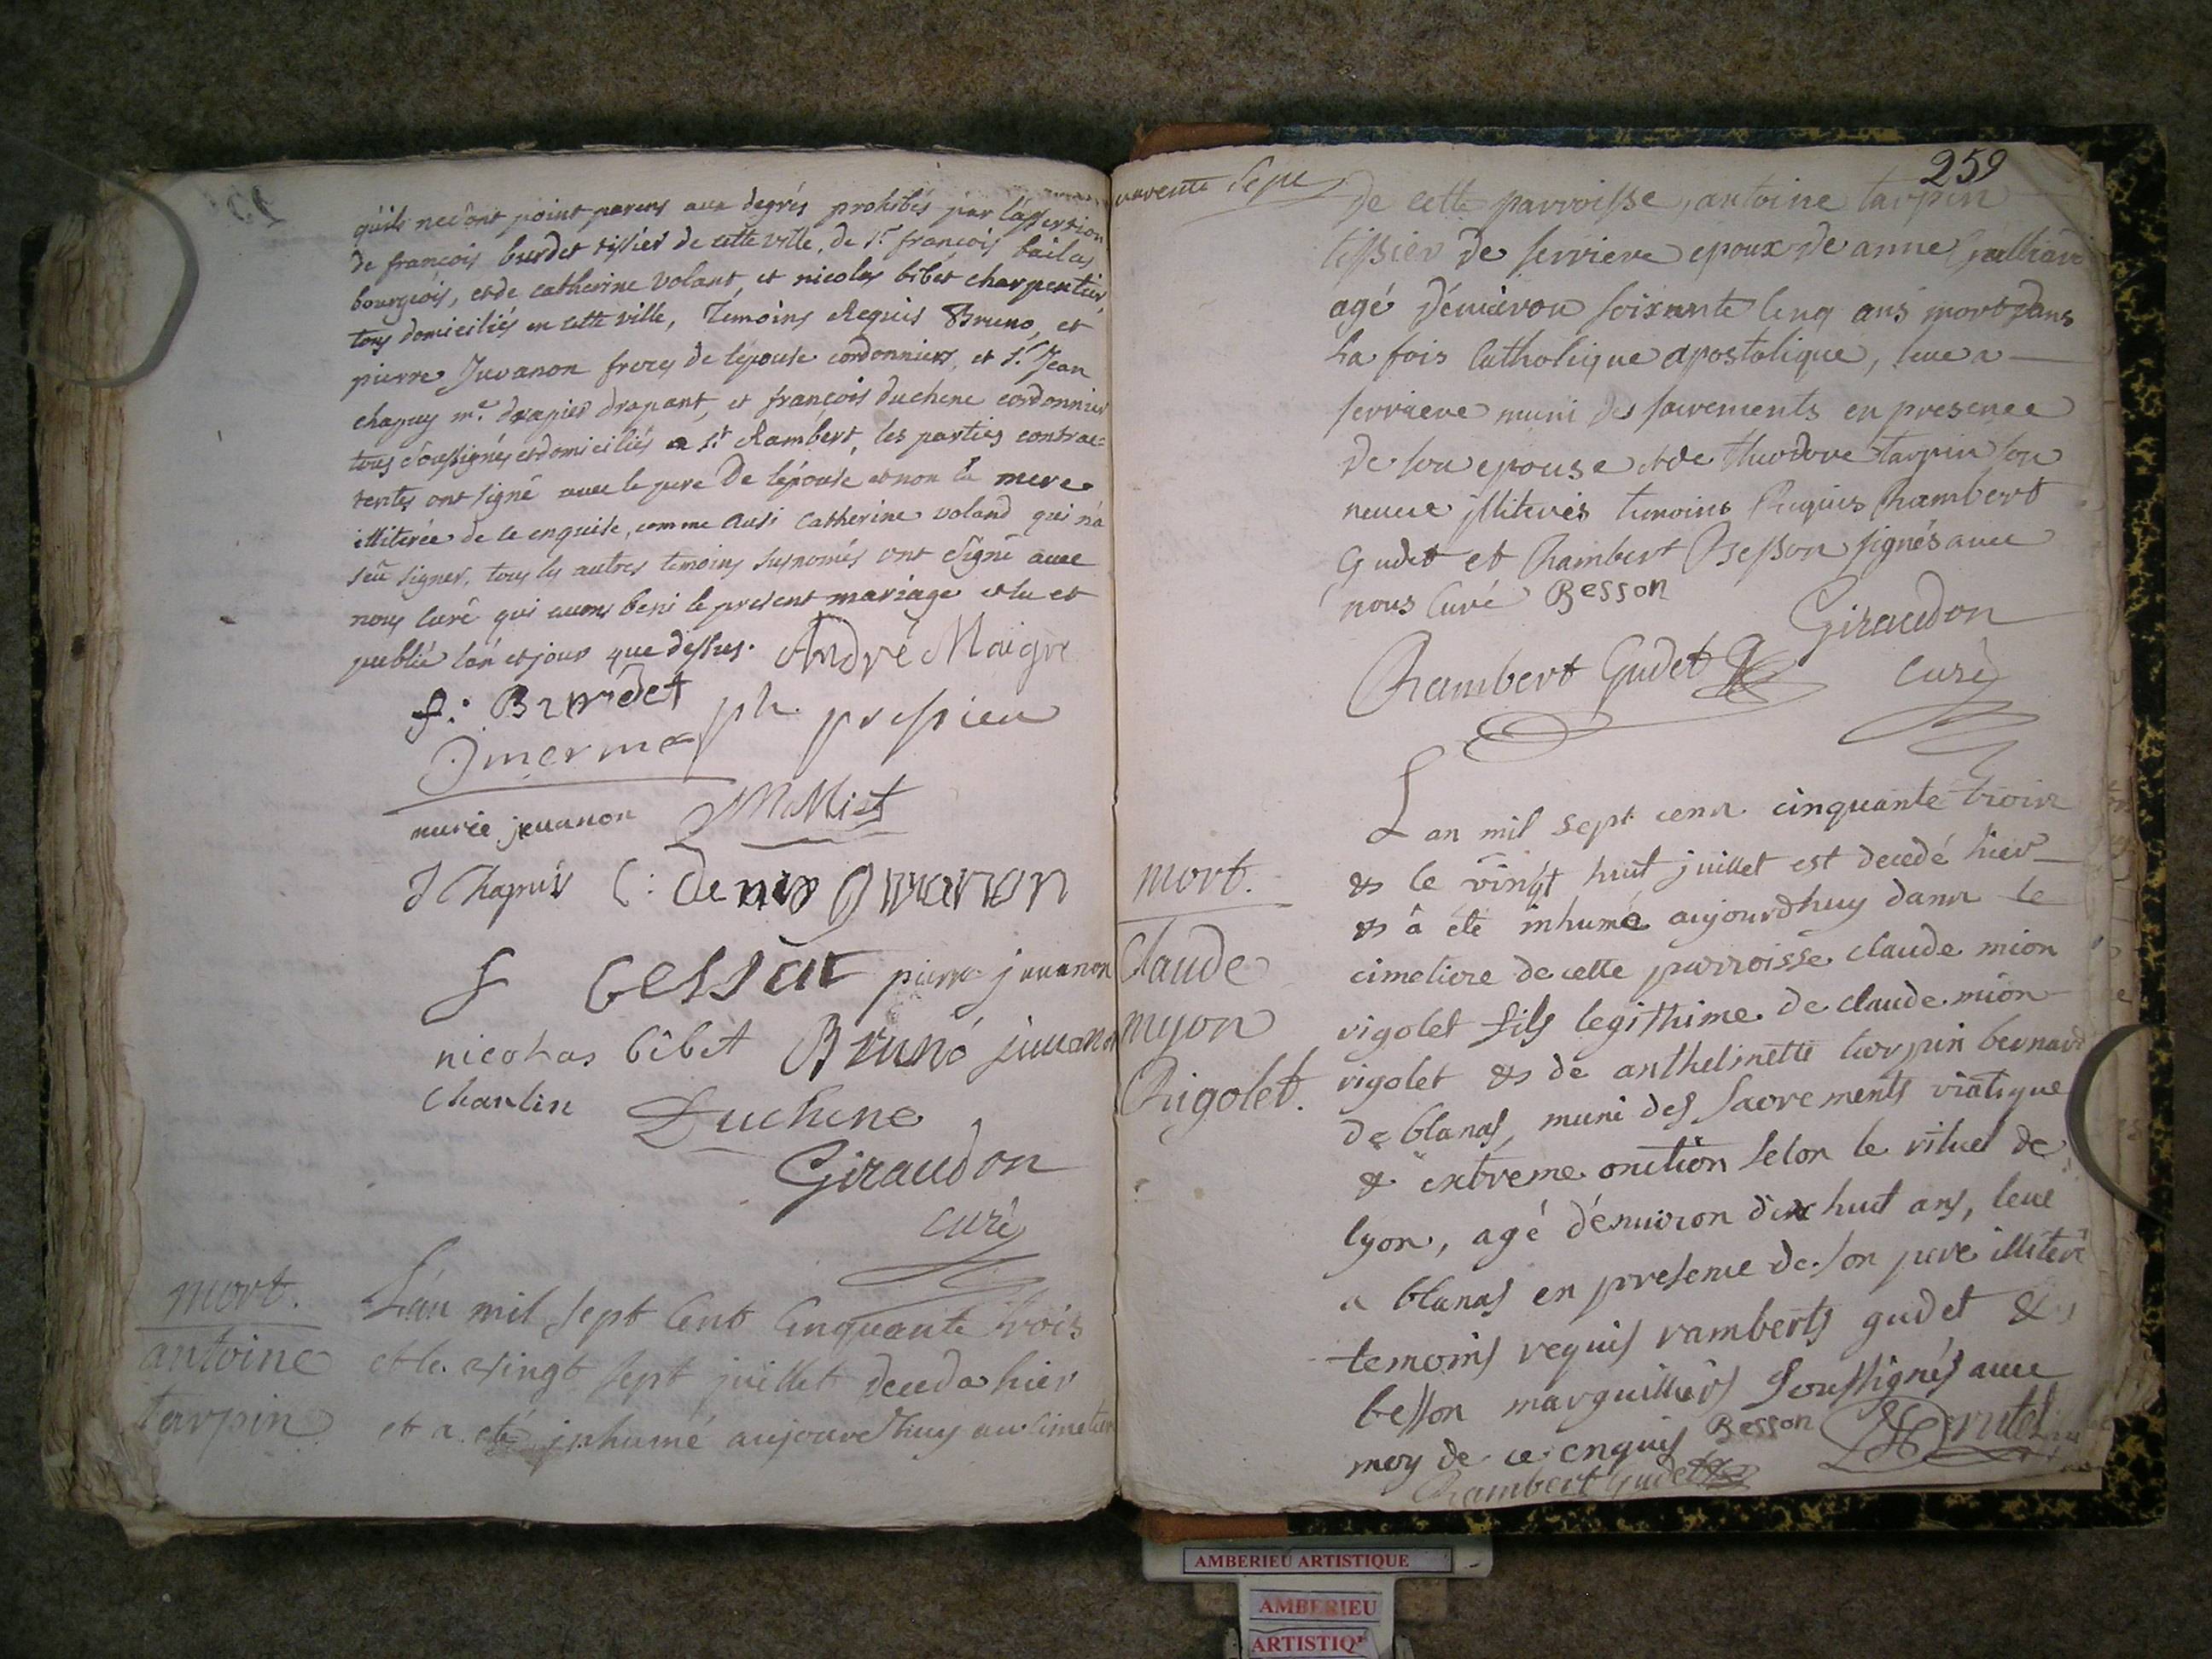 qu'ils ne sont point parens aux degrés prohibés par l'assertion
de françois burdet tissier de cette ville, de Sr. françois bailas
bourgeois, et de catherine volant, et nicolas bibet charpentier,
tous domiciliés en cette ville, Temoins Requis Bruno, et
pierre Juvanon freres de l'epouse cordonniers, et Sr. Jean
chapuy me. drapier drapant, et françois duchene cordonnier
tous soussignés et domiciliés a St. Rambert, les parties contrac=
tentes ont signé avec le pere De l'épouse et non la mere
illiterée de ce enquise, comme Ausi Catherine voland qui n'a
seû signer, tous les autres temoins susnomés ont signé avec
nous curé qui avons beni le present mariage et lu et
publié l'an et jour que dessus. André Maigre
f: Burdet ph. pressieu
Jmerma
marie jeuanon
J Chapuis C: denis
f bessat pierre jeuanon
nicolas bibet Bruno juuanon
Chanlin Duchene
Giraudon
curé
mort.
antoine
tarpin
L'an mil sept Cent Cinquante trois
et le vingt sept juillet deceda hier
et a eté inhumé aujourd'huy au Cimetier
259
de cette parroisse, antoine tarpin
tissier de serriere epoux de anne Julliand
agé d'environ soixante Cinq ans mort dans
La fois Catholique apostolique, leue a
serriere muni des sacrements en presence
de son epouse et de theodore tarpin son
neveu jlliterés temoins Requis Rambert
Gudet et Rambert Besson signés avec
nous Curé Besson
Giraudon
Rambert Gudet curé
mort.
Claude
myon
Rigolet.
L an mil sept cent cinquante trois
& le vingt huit juillet est decedé hier
& â été inhumé aujourdhuy dans le
cimetiere de cette parroisse claude mion
rigolet fils legithime de claude mion
rigolet & de anthelmette tarpin bernard
de blanas, muni des sacrements viatique
& extreme onction selon le rituel de
lyon, agé d'environ dix huit ans, leue
a blanas en presence de son pere illiteré
temoins requis ramberts gudet &
besson marguilliers soussignés avec
moy de ce enquis Besson
Rambert Gudet
AMBERIEU ARTISTIQUE
AMBERIEU
ARTISTIQ